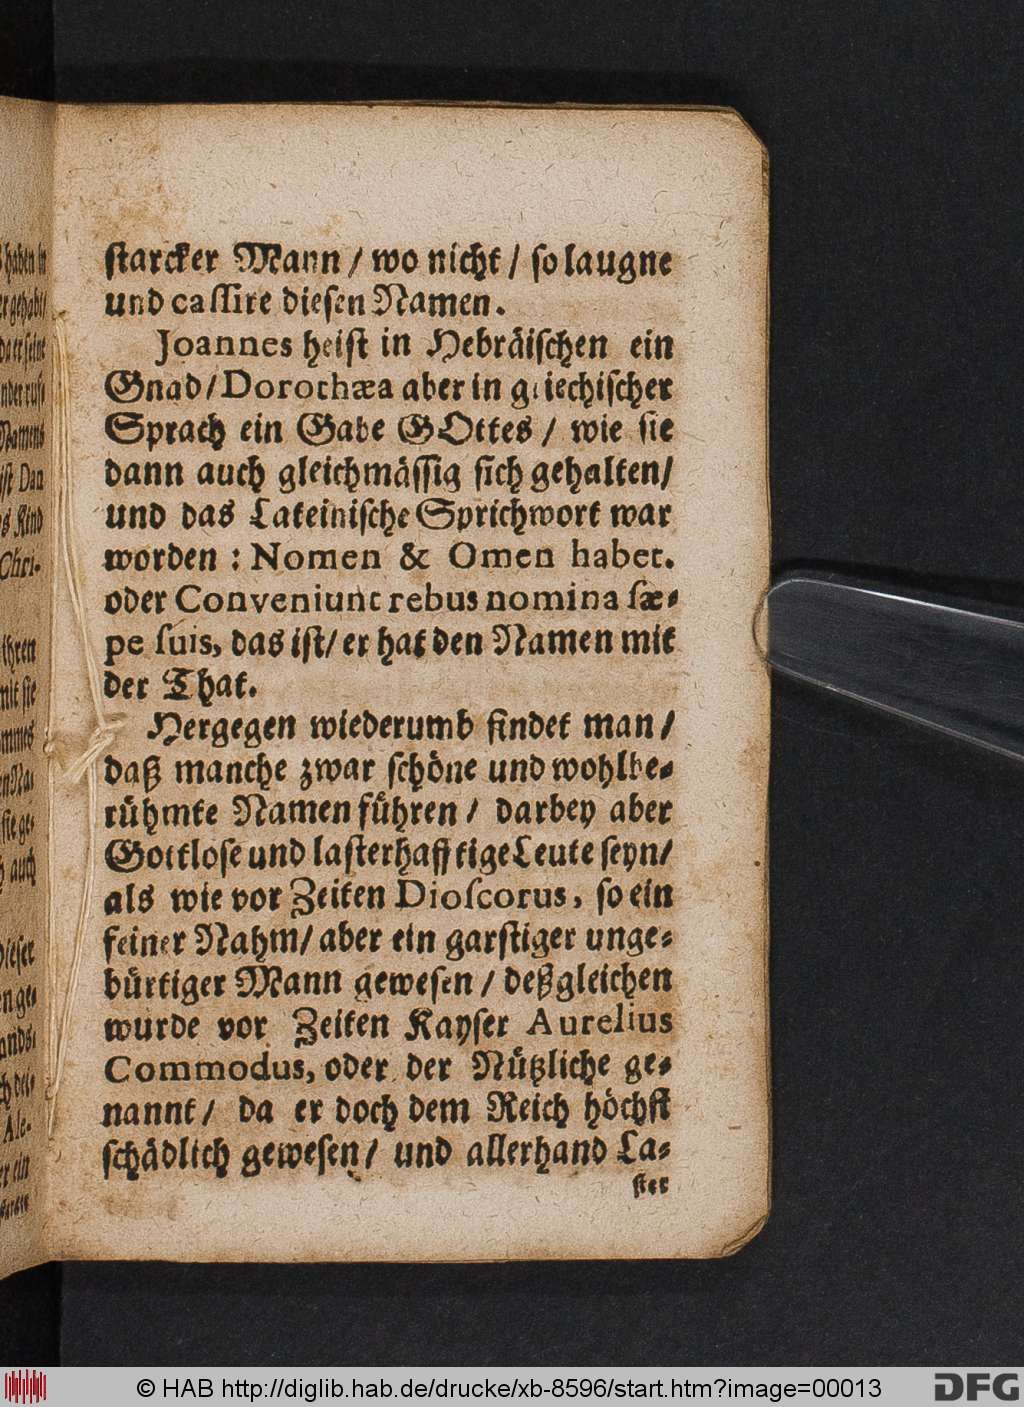 ſtarcker Mann / wo nicht / ſo laugne
und caſſire dieſen Namen.
Joannes heiſt in Hebräiſchen ein
Gnad / Dorothæa aber in griechiſcher
Sprach ein Gabe GOttes / wie ſie
dann auch gleichmäſſig ſich gehalten /
und das Lateiniſche Sprichwort war
worden : Nomen & Omen habet.
oder Conveniunt rebus nomina ſæ-
pe ſuis, das iſt / er hat den Namen mit
der That.
Hergegen wiederumb findet man /
daß manche zwar ſchöne und wohlbe-
rühmte Namen führen / darbey aber
Gottloſe und laſterhafftige Leute ſeyn /
als wie vor Zeiten Dioſcorus, ſo ein
feiner Nahm / aber ein garſtiger unge-
bürtiger Mann geweſen / deßgleichen
wurde vor Zeiten Kayſer Aurelius
Commodus, oder der Nützliche ge-
nannt / da er doch dem Reich höchſt
ſchädlich geweſen / und allerhand La-
ſter
© HAB http://diglib.hab.de/drucke/xb-8596/start.htm?image=00013
DFG